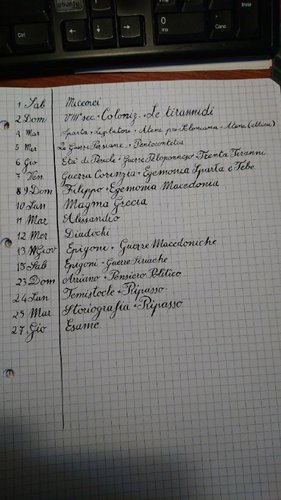 1 Sab Micenei
2 Dom VIII sec. Coloniz. Le tirannidi
4 Mar Sparta + Legislatori + Atene pre-Soloniana + Atene
5 Mer Le Guerre Persiane + Pentecontetia
6 Gio Età di Pericle + Guerra Peloponneso + Trenta Tiranni
7 Ven Guerra Corinzia + Egemonia Sparta e Tebe
8 9 Dom Filippo + Egemonia Macedonia
10 Lun Magna Grecia
11 Mar Alessandro
12 Mer Diadochi
13 Giov Epigoni + Guerre Macedoniche
15 Sab Epigoni + Guerre Siriache
23 Dom Arriano + Pensiero Politico
24 Lun Temistocle + Ripasso
25 Mar Storiografia + Ripasso
27 Gio Esame